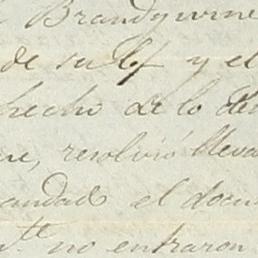 Brandywine
de su Gf y el
hecho de lo
resolvió lleva
el docu
no entraron